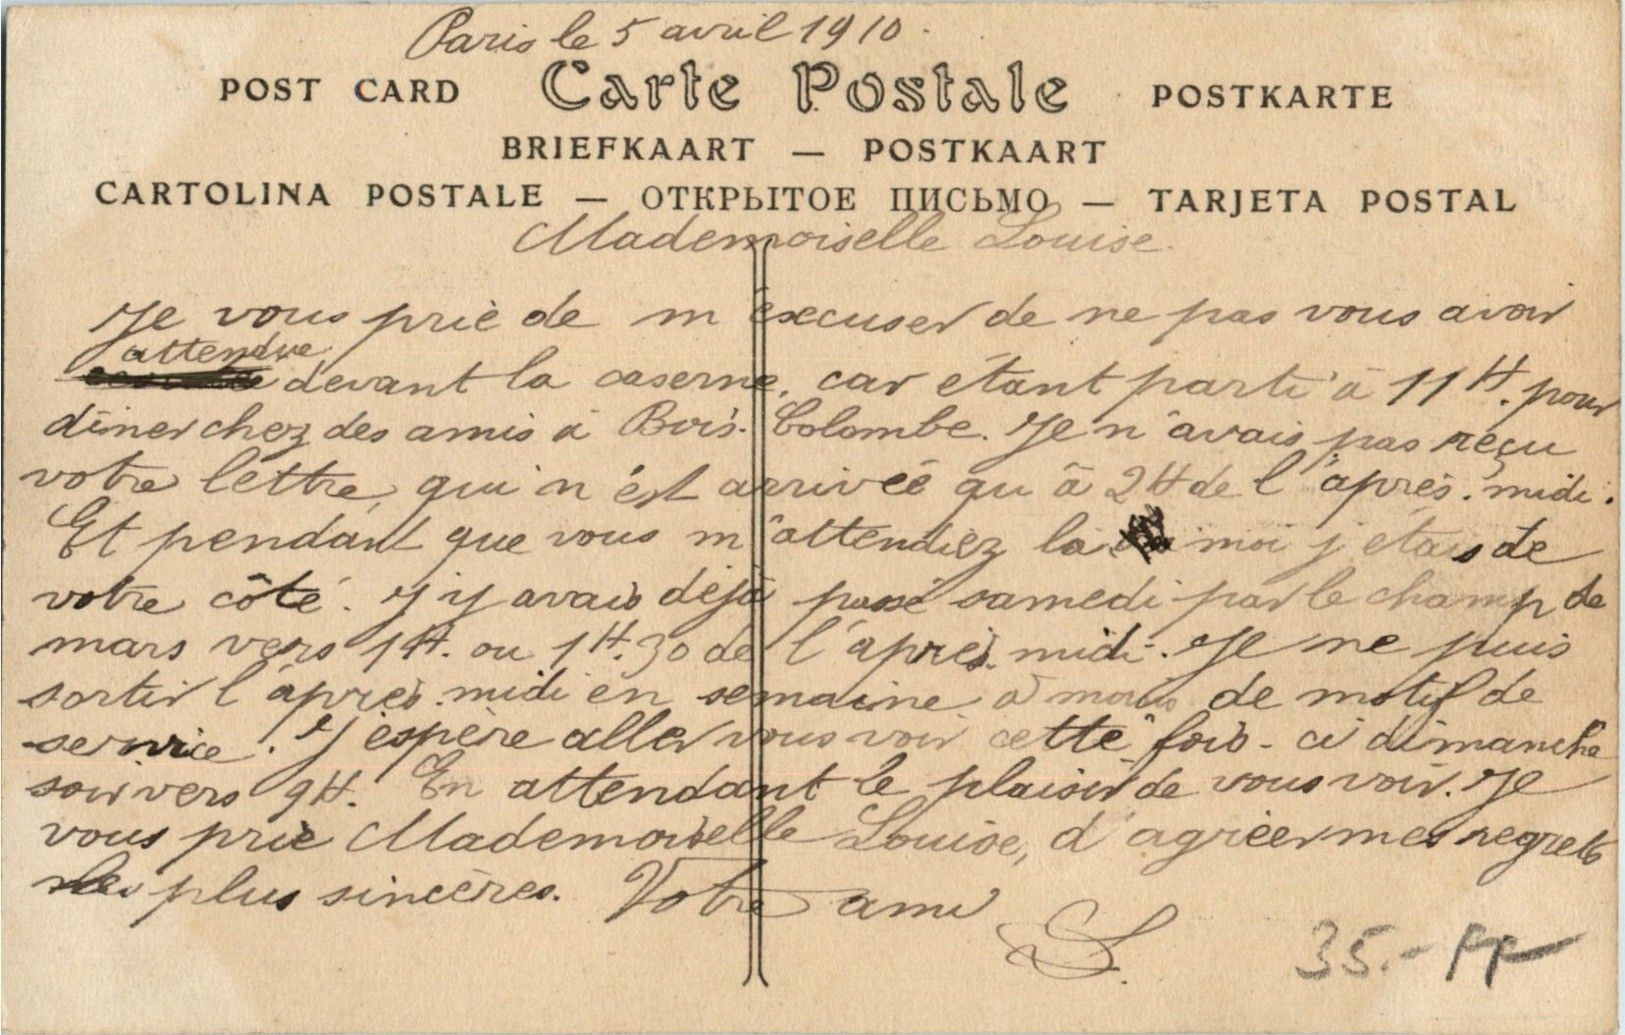 Paris le 5 avril 1910.
POST CARD Carte Postale POSTKARTE
BRIEFKAART — POSTKAART
CARTOLINA POSTALE — ОТКРЫТОЕ ПИСЬМО — TARJETA POSTAL
Mademoiselle Louise.
Je vous prie de m'excuser de ne pas vous avoir
attendue
devant la caserne, car étant parti à 11H. pour
dîner chez des amis à Bois-Colombe. Je n'avais pas reçu
votre lettre, qui n'est arrivée qu'à 2H de l'après-midi.
Et pendant que vous m'attendiez la moi j'étais de
votre côté. J'y avais déjà passé samedi par le champ de
mars vers 1H. ou 1H.30 de l'après-midi. Je ne puis
sortir l'après-midi en semaine à moins de motif de
service. J'espère aller vous voir cette fois-ci dimanche
soir vers 9H. En attendant le plaisir de vous voir. Je
vous prie Mademoiselle Louise, d'agréer mes regrets
les plus sincères. Votre ami
L.
35.- FF